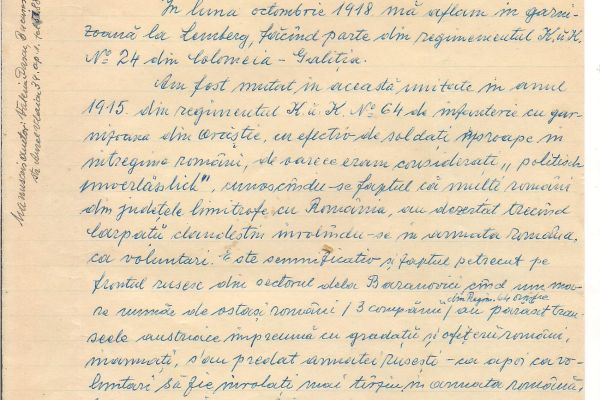 În luna octombrie 1918 mă aflam în garni-
zoană la Lemberg, făcînd parte din regimentul K.u.K.
No 24 din Colomeia - Galiția.
Am fost mutat în această unitate în anul
1915 din regimentul K.u.K. No 64 de infanterie cu gar-
nizoana din Orăștie, cu efectiv de soldați aproape în
întregime români, de oarece eram considerați „politisch
unverläslich", cunoscîndu-se faptul că mulți români
din județele limitrofe cu România, au dezertat trecînd
Carpații clandestin înrolîndu-se în armata română,
ca voluntari. Este semnificativ și faptul petrecut pe
frontul rusesc din sectorul dela Baranovici cînd un ma-
din Regim. 64 Orăștie
re număr de ostași români /3 companii/ au părăsit tran-
șeele austriace împreună cu gradații și ofițerii români,
înarmați, s'au predat armatei rusești - ca apoi ca vo-
luntari să fie înrolați mai tîrziu, în armata română,
Manuscrisul